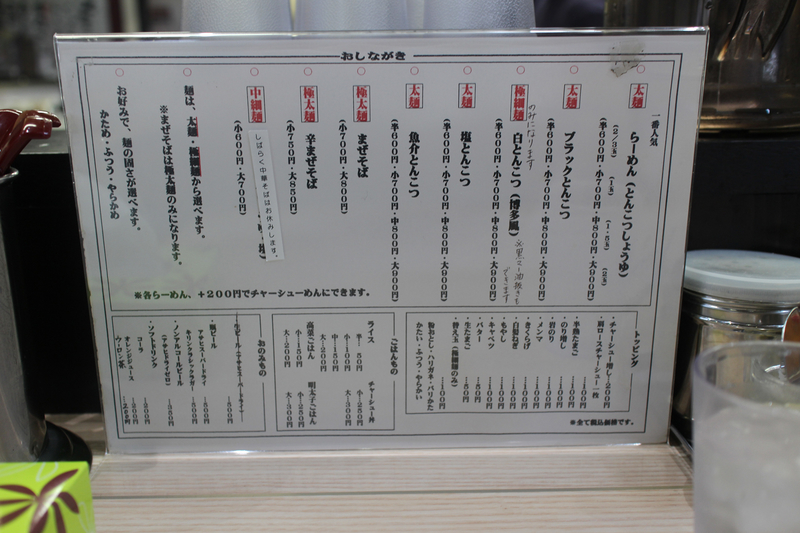 おしながき
一番人気
○ 太麺 らーめん(とんこつしょうゆ)
(2/3玉) (1玉) (1.5玉) (2玉)
(半600円・小700円・中800円・大900円)
○ 太麺 ブラックとんこつ
(半600円・小700円・中800円・大900円)
○ 極細麺 白とんこつ(博多風)
のみになります
※黒マー油抜きも
できます
(半600円・小700円・中800円・大900円)
○ 太麺 塩とんこつ
(半600円・小700円・中800円・大900円)
○ 太麺 魚介とんこつ
(半600円・小700円・中800円・大900円)
○ 極太麺 まぜそば
(小700円・大800円)
○ 極太麺 辛まぜそば
(小750円・大850円)
○ 中細麺
しばらく中華そばはお休みします。
(小600円・大700円)
○ 麺は、太麺・極細麺から選べます。
※まぜそばは極太麺のみになります。
○ お好みで、麺の固さが選べます。
かため・ふつう・やらかめ
※各らーめん、+200円でチャーシューめんにできます。
トッピング
・チャーシュー増し…200円
・肩ロースチャーシュー一枚
…100円
・半熟たまご…100円
・のり増し…100円
・岩のり…100円
・メンマ…100円
・きくらげ…100円
・白髪ねぎ…100円
・もやし…100円
・キャベツ…100円
・バター…50円
・生たまご…50円
・替え玉(極細麺のみ)…100円
粉おとし・ハリガネ・バリかた
かたい・ふつう・やらかい
※全て税込価格です。
ごはんもの
ライス
半…50円
小…100円
中…150円
大…200円
チャーシュー丼
小…250円
大…300円
高菜ごはん
小…150円
大…200円
明太子ごはん
小…250円
大…300円
おのみもの
・生ビール(アサヒスーパードライ)
…500円
・瓶ビール
アサヒスーパードライ…500円
キリンクラシックラガー…500円
・ノンアルコールビール
(アサヒドライゼロ)…350円
・ソフトドリンク
コーラ…200円
オレンジジュース…200円
ウーロン茶…200円